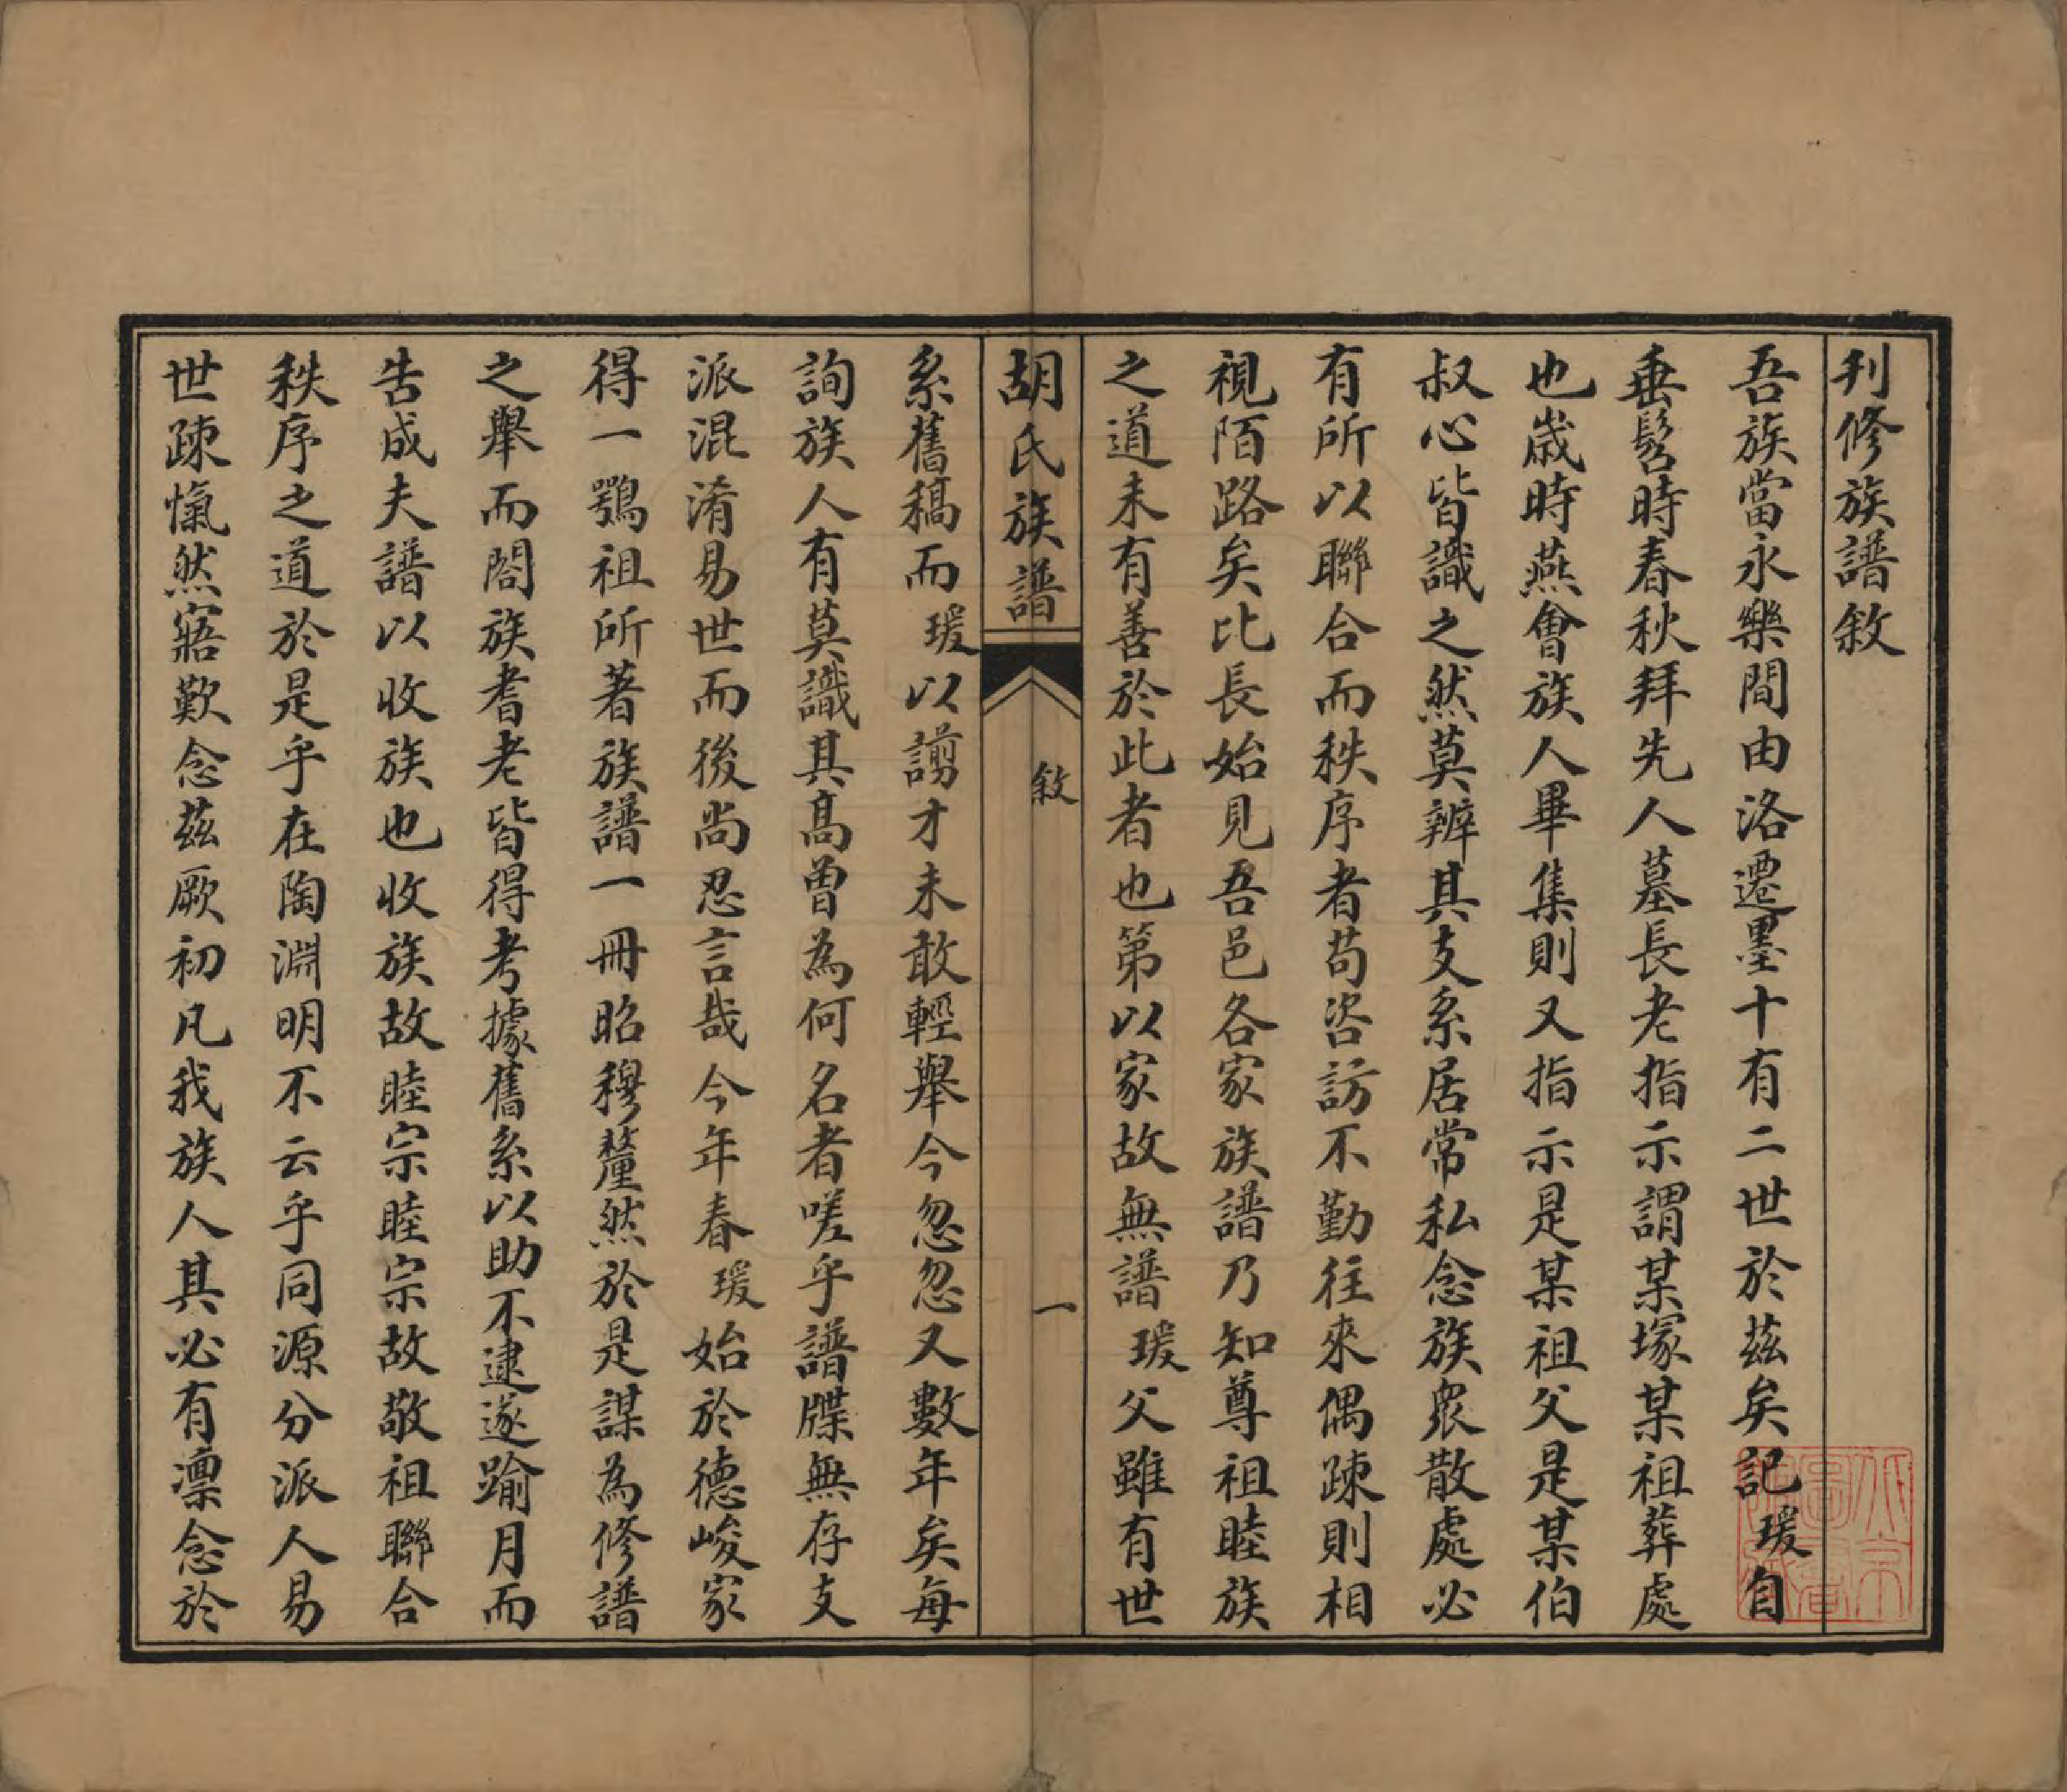 刋修族譜敘
吾族當永樂間由洛遷墨十有二世於茲矣記瑗自
垂髫時春秋拜先人墓長老指示謂某塚某祖葬處
也歲時燕會族人畢集則又指示是某祖父是某伯
叔心皆識之然莫辨其支系居常私念族衆散處必
有所以聯合而秩序者苟咨訪不勤往來偶疎則相
視陌路矣比長始見吾邑各家族譜乃知尊祖睦族
之道未有善於此者也第以家故無譜瑗父雖有世
胡氏族譜
敘
一
系舊稿而瑗以謭才未敢輕舉今忽忽又數年矣每
詢族人有莫識其高曾為何名者嗟乎譜牒無存支
派混淆易世而後尚忍言哉今年春瑗始於德峻家
得一鶚祖所著族譜一冊昭穆釐然於是謀為修譜
之舉而閤族耆老皆得考據舊系以助不逮遂踰月而
告成夫譜以收族也收族故睦宗睦宗故敬祖聯合
秩序之道於是乎在陶淵明不云乎同源分派人易
世疎愾然寤歎念茲厥初凡我族人其必有凛念於